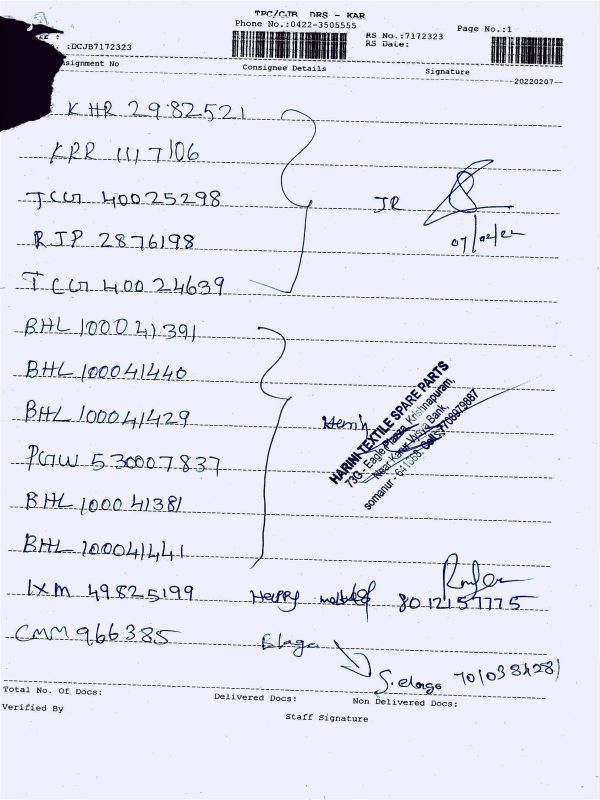 TPC/CJB DRS - KAR
Phone No.:0422-3505555
RS No.:7172323
Page No.:1
RS Date:
:DCJB7172323
signment No
Consignee Details
Signature
20220207
KHR 2982521
KRR 1117106
TCG 40025298
JR
07/02/22
RJP 2876198
TCG 40024639
BHL 100041391
BHL 100041440
BHL 100041429
HARINI TEXTILE SPARE PARTS
73G- Eagle Plazza, Krishnapuram,
Near Karur Vysya Bank
somanur - 641668. Cell:
PGW 530007837
BHL 100041381
BHL 100041441
IXM 49825199 Happy 8012157775
CMM 966385 Elaga
S. elango
Total No. Of Docs:
Delivered Docs:
Non Delivered Docs:
Verified By
Staff Signature